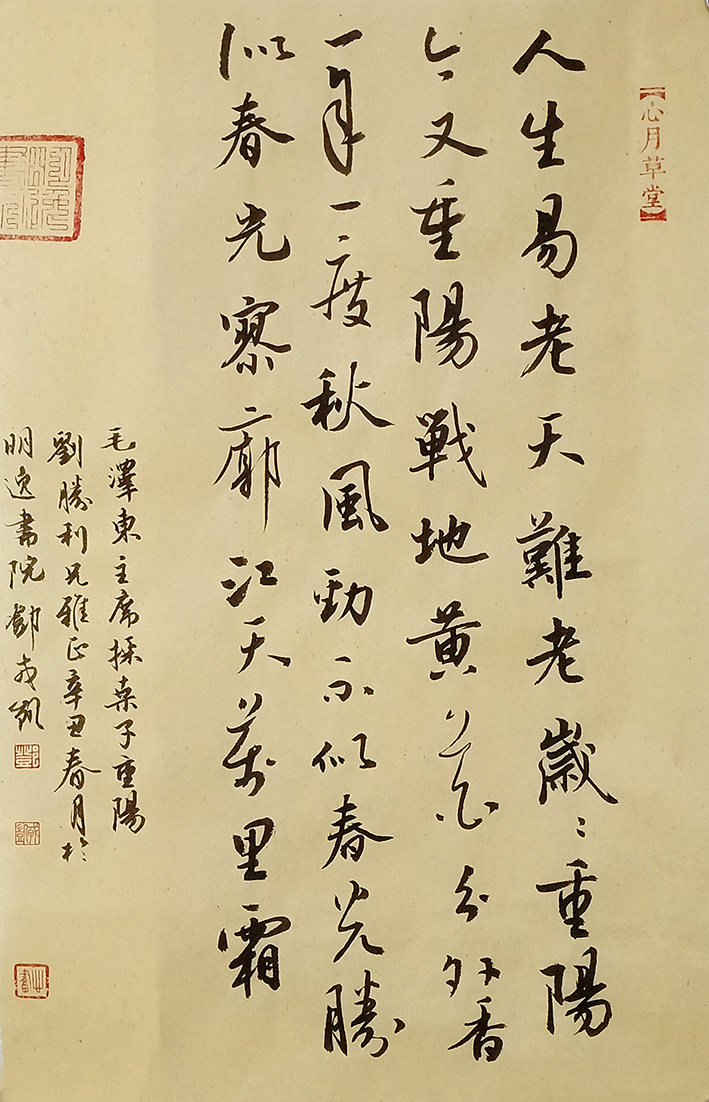 【心月草堂】
人生易老天難老歲〻重陽
今又重陽戦地黄花分外香
一年一度秋風勁不似春光勝
似春光寥廓江天萬里霜
毛澤東主席採桑子重陽
劉勝利兄雅正辛丑春月於
明逸書院